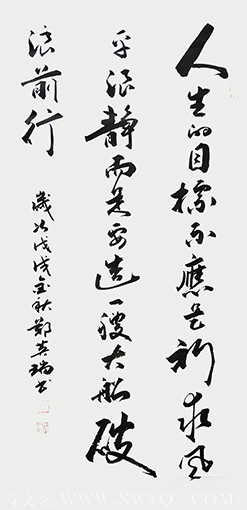 人生的目标不應是祈求风
平浪静而是要造一艘大船破
浪前行
歲次戊戌金秋鄭英瑞书